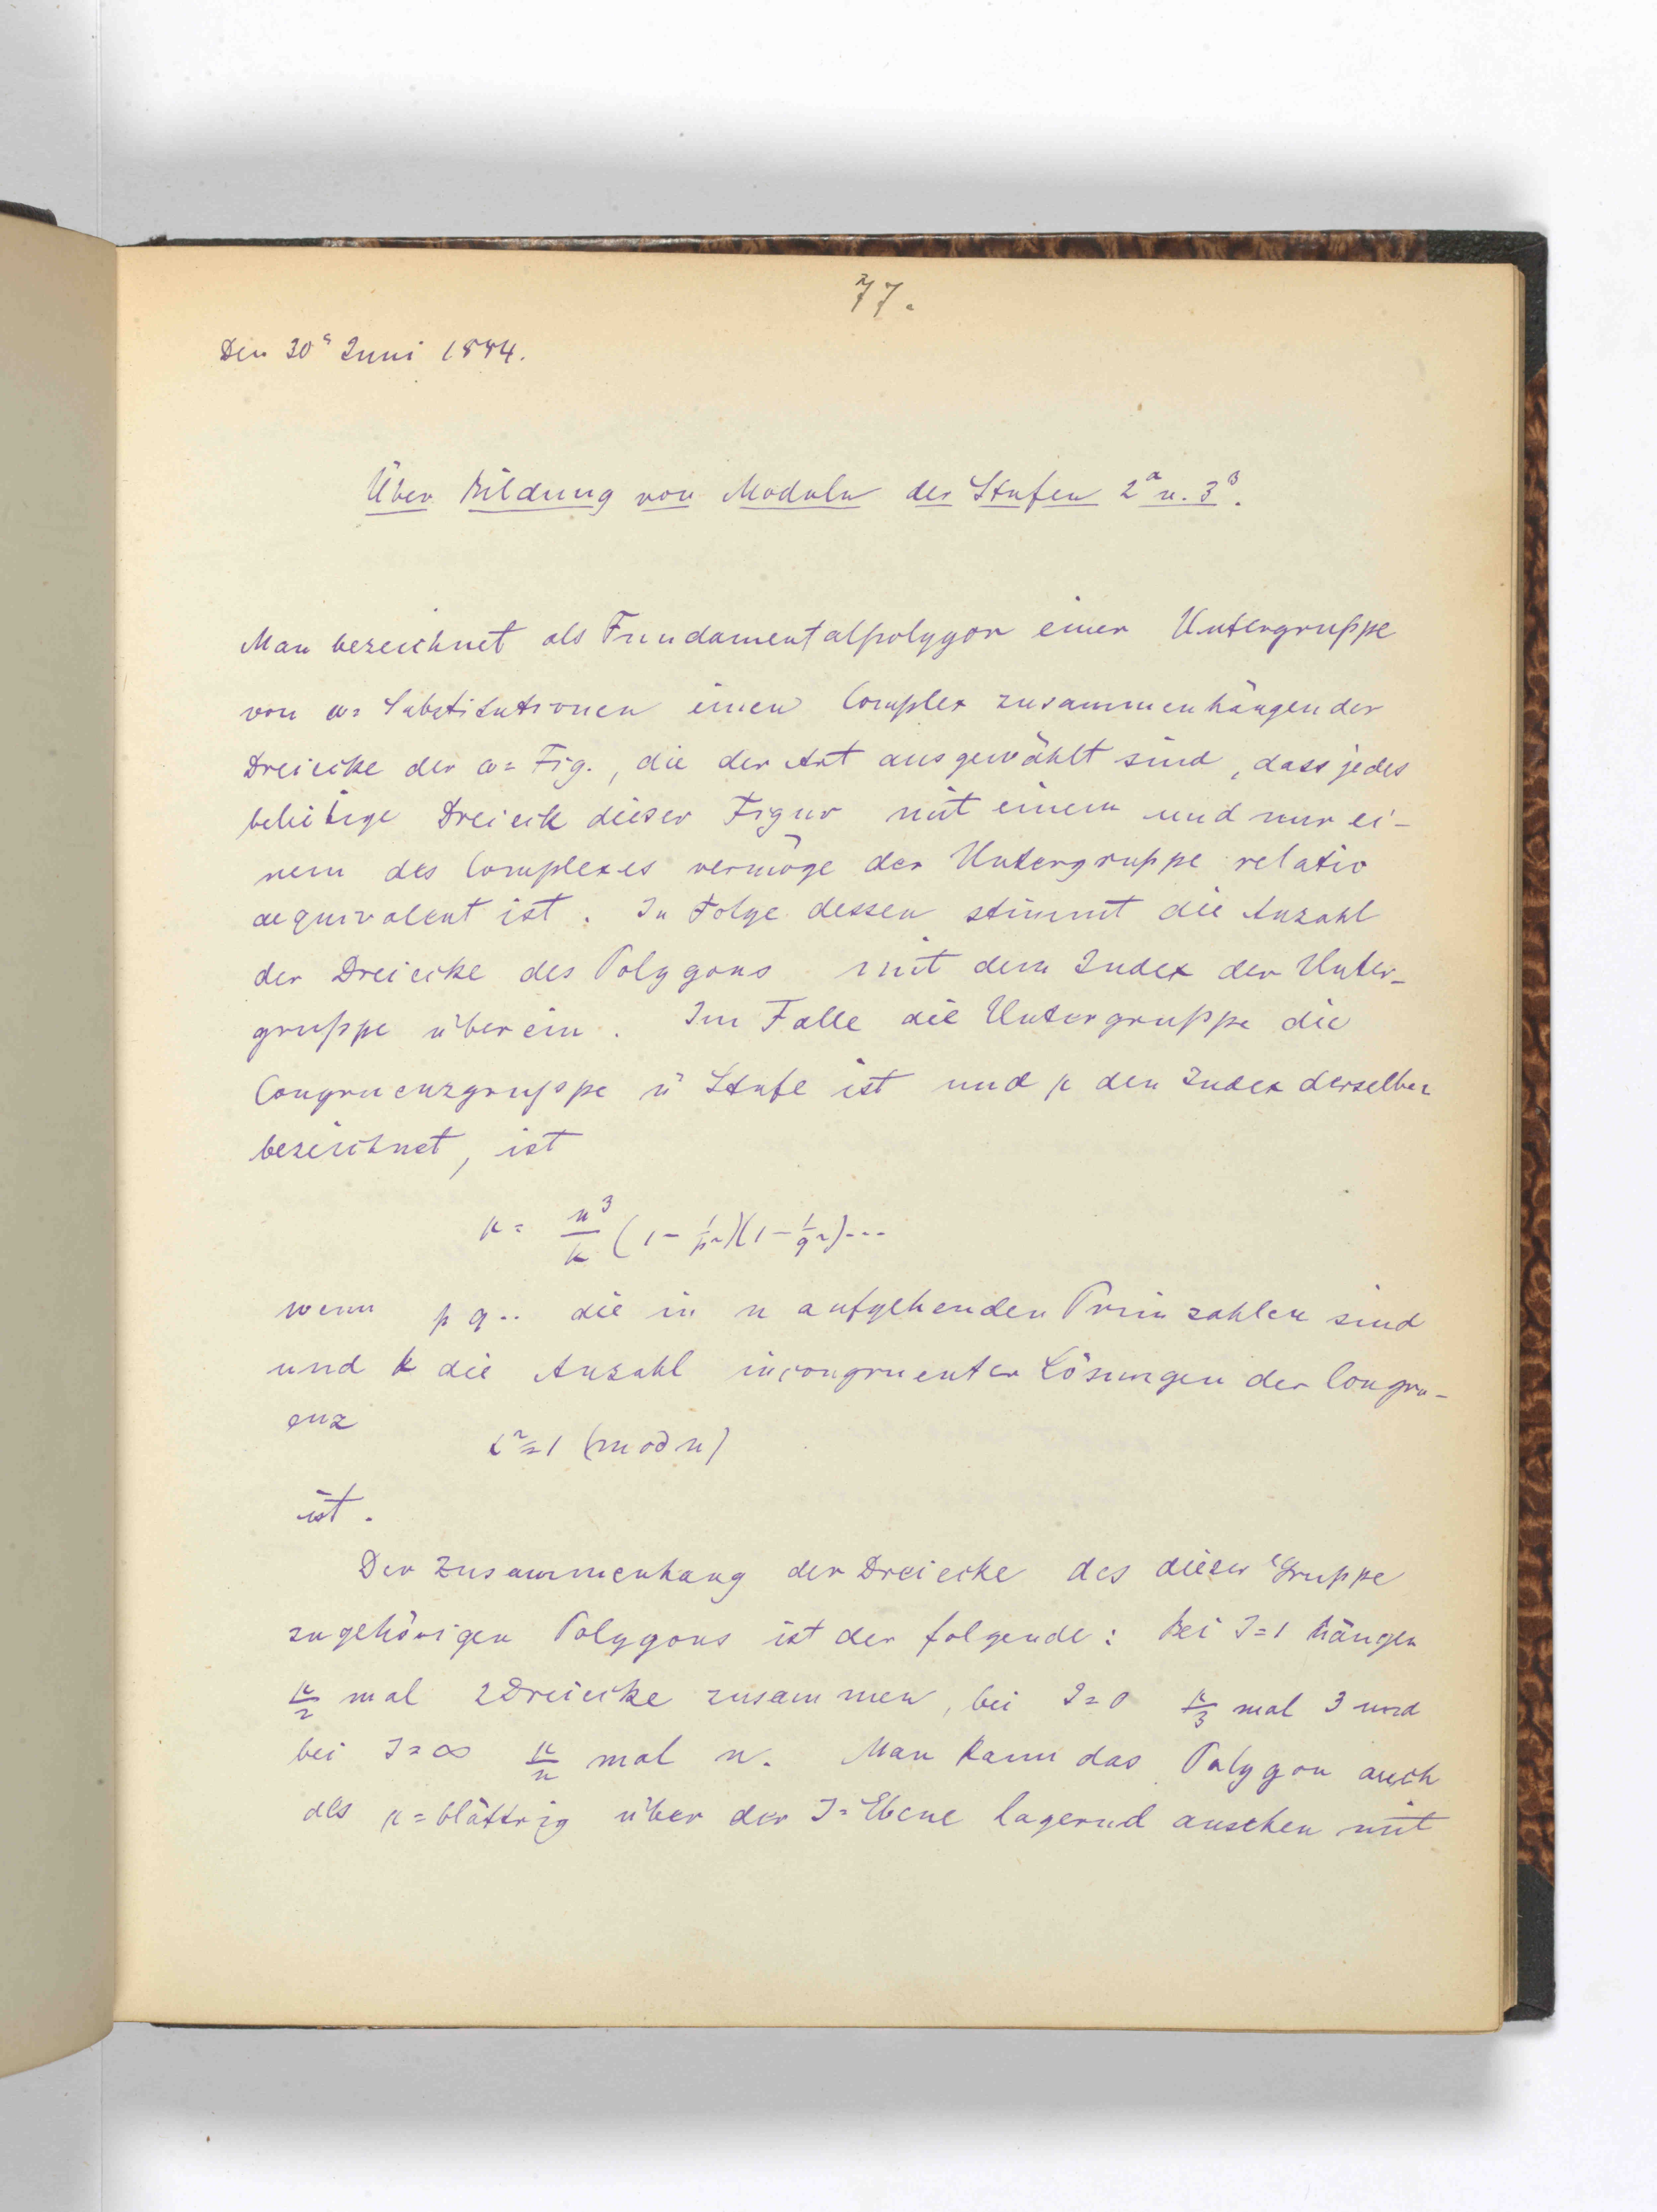 77.
Den 30ⁿ Juni 1884.
Über Bildung von Moduln der Stufen 2^α u. 3^β.
Man bezeichnet als Fundamentalpolygon einer Untergruppe
von ω= Substitutionen einen Complex zusammenhängender
Dreiecke der ω= Fig., die der Art ausgewählt sind, dass jedes
beliebige Dreieck dieser Figur mit einem und nur ei-
nem des Complexes vermöge der Untergruppe relativ
aequivalent ist. In Folge dessen stimmt die Anzahl
der Dreiecke des Polygons mit dem Index der Unter-
gruppe überein. Im Falle die Untergruppe die
Congruenzgruppe n Stufe ist und μ den Index derselben
bezeichnet, ist
μ = n³/k (1 - 1/p²)(1 - 1/q²)...
wenn p q.. die in n aufgehenden Primzahlen sind
und k die Anzahl incongruenter Lösungen der Congru-
enz
i² ≡ 1 (mod n)
ist.
Der Zusammenhang der Dreiecke des dieser Gruppe
zugehörigen Polygons ist der folgende: Bei J=1 hängen
μ/2 mal 2 Dreiecke zusammen, bei J=0 μ/3 mal 3 und
bei J=∞ μ/n mal n. Man kann das Polygon auch
als μ=blättrig über der J=Ebene lagernd ansehen mit